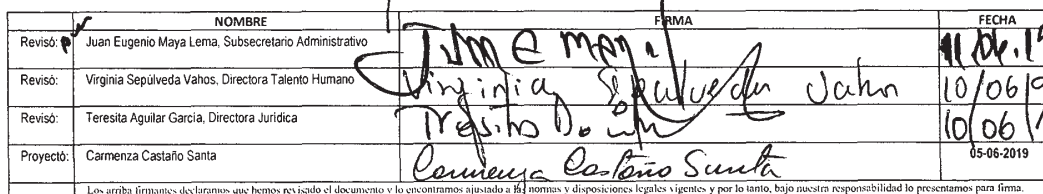 NOMBRE FIRMA FECHA
Revisó: Juan Eugenio Maya Lema, Subsecretario Administrativo
Revisó: Virginia Sepúlveda Vahos, Directora Talento Humano Virginia Sepulveda Vahos 10/06/
Revisó: Teresita Aguilar García, Directora Jurídica 10/06/
Proyectó: Carmenza Castaño Santa Carmenza Castaño Santa 05-06-2019
Los arriba firmantes declaramos que hemos revisado el documento y lo encontramos ajustado a las normas y disposiciones legales vigentes y por lo tanto, bajo nuestra responsabilidad lo presentamos para firma.